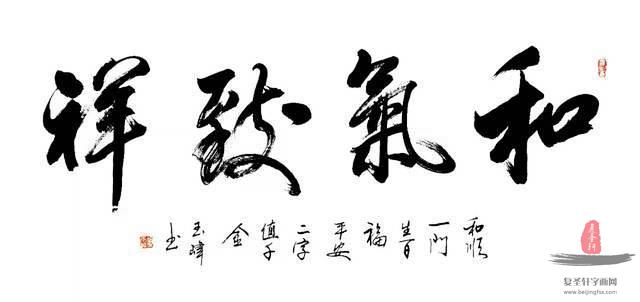 和氣致祥
和顺
一门
生百
福
平安
二字
值千
金
玉
书
复圣轩
复圣轩字画网
www.beijingfsx.com